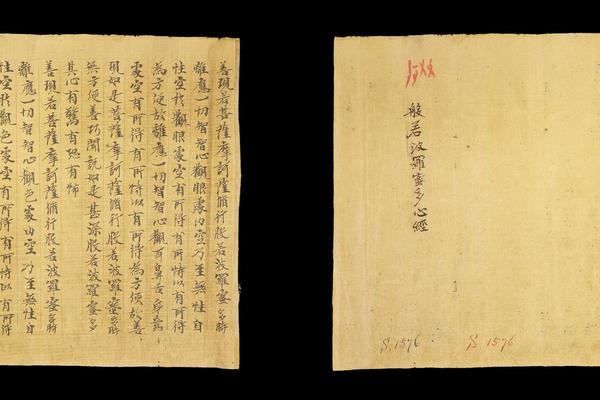 善現若菩薩摩訶薩脩行般若波羅蜜多時
離應一切智智心觀眼處內空乃至無性自
性空於觀眼處空有所得有所恃以有所得
為方便故離應一切智智心觀耳鼻舌身意
處空有所得有所恃以有所得為方便故善
現如是菩薩摩訶薩脩行般若波羅蜜多時
無方便善巧聞說如是甚深般若波羅蜜多
其心有驚有恐有怖
善現若菩薩摩訶薩脩行般若波羅蜜多時
離應一切智智心觀色處內空乃至無性自
性空於觀色處空有所得有所恃以有所得
般若波羅蜜多心經
S.1576
S.1576